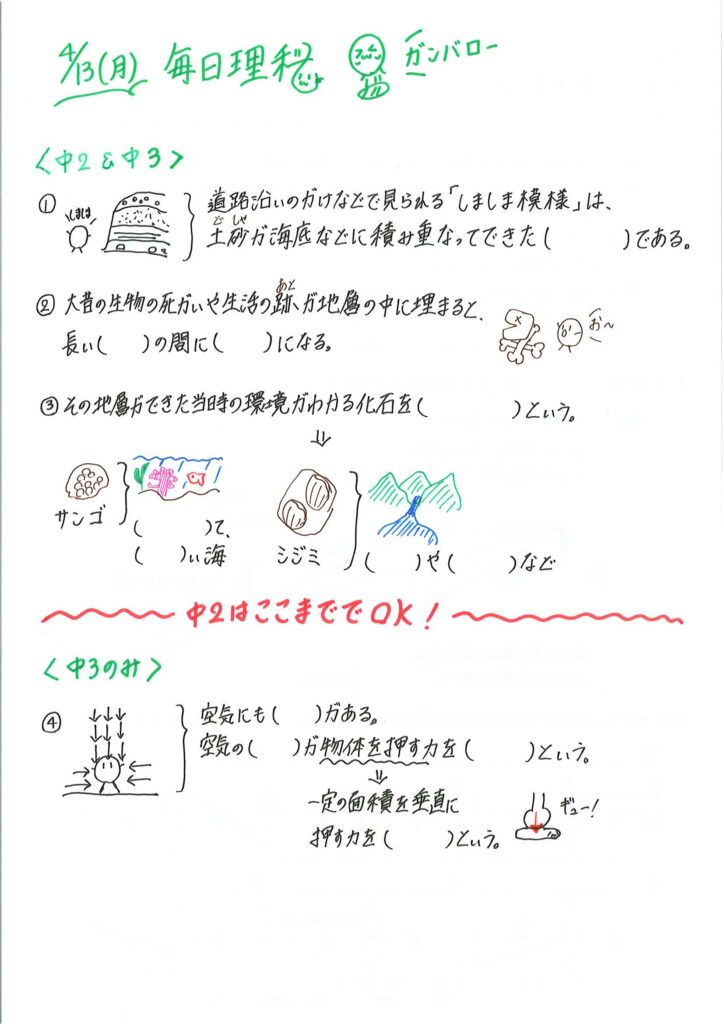 4/13(月) 毎日理科 ガンバロー
<中2&中3>
① しましま 道路沿いのがけなどで見られる「しましま模様」は、
土砂が海底などに積み重なってできた(　　　)である。
どしゃ
② 大昔の生物の死がいや生活の跡が地層の中に埋まると、
あと
長い(　　)の間に(　　)になる。
お〜
③ その地層ができた当時の環境がわかる化石を(　　　)という。
⇓
サンゴ (　　　)て、
(　　)い海
シジミ (　　)や(　　)など
中2はここまででOK!
<中3のみ>
④ 空気にも(　　)がある。
空気の(　　)が物体を押す力を(　　　)という。
⇓
一定の面積を垂直に
押す力を(　　　)という。
ギュー!